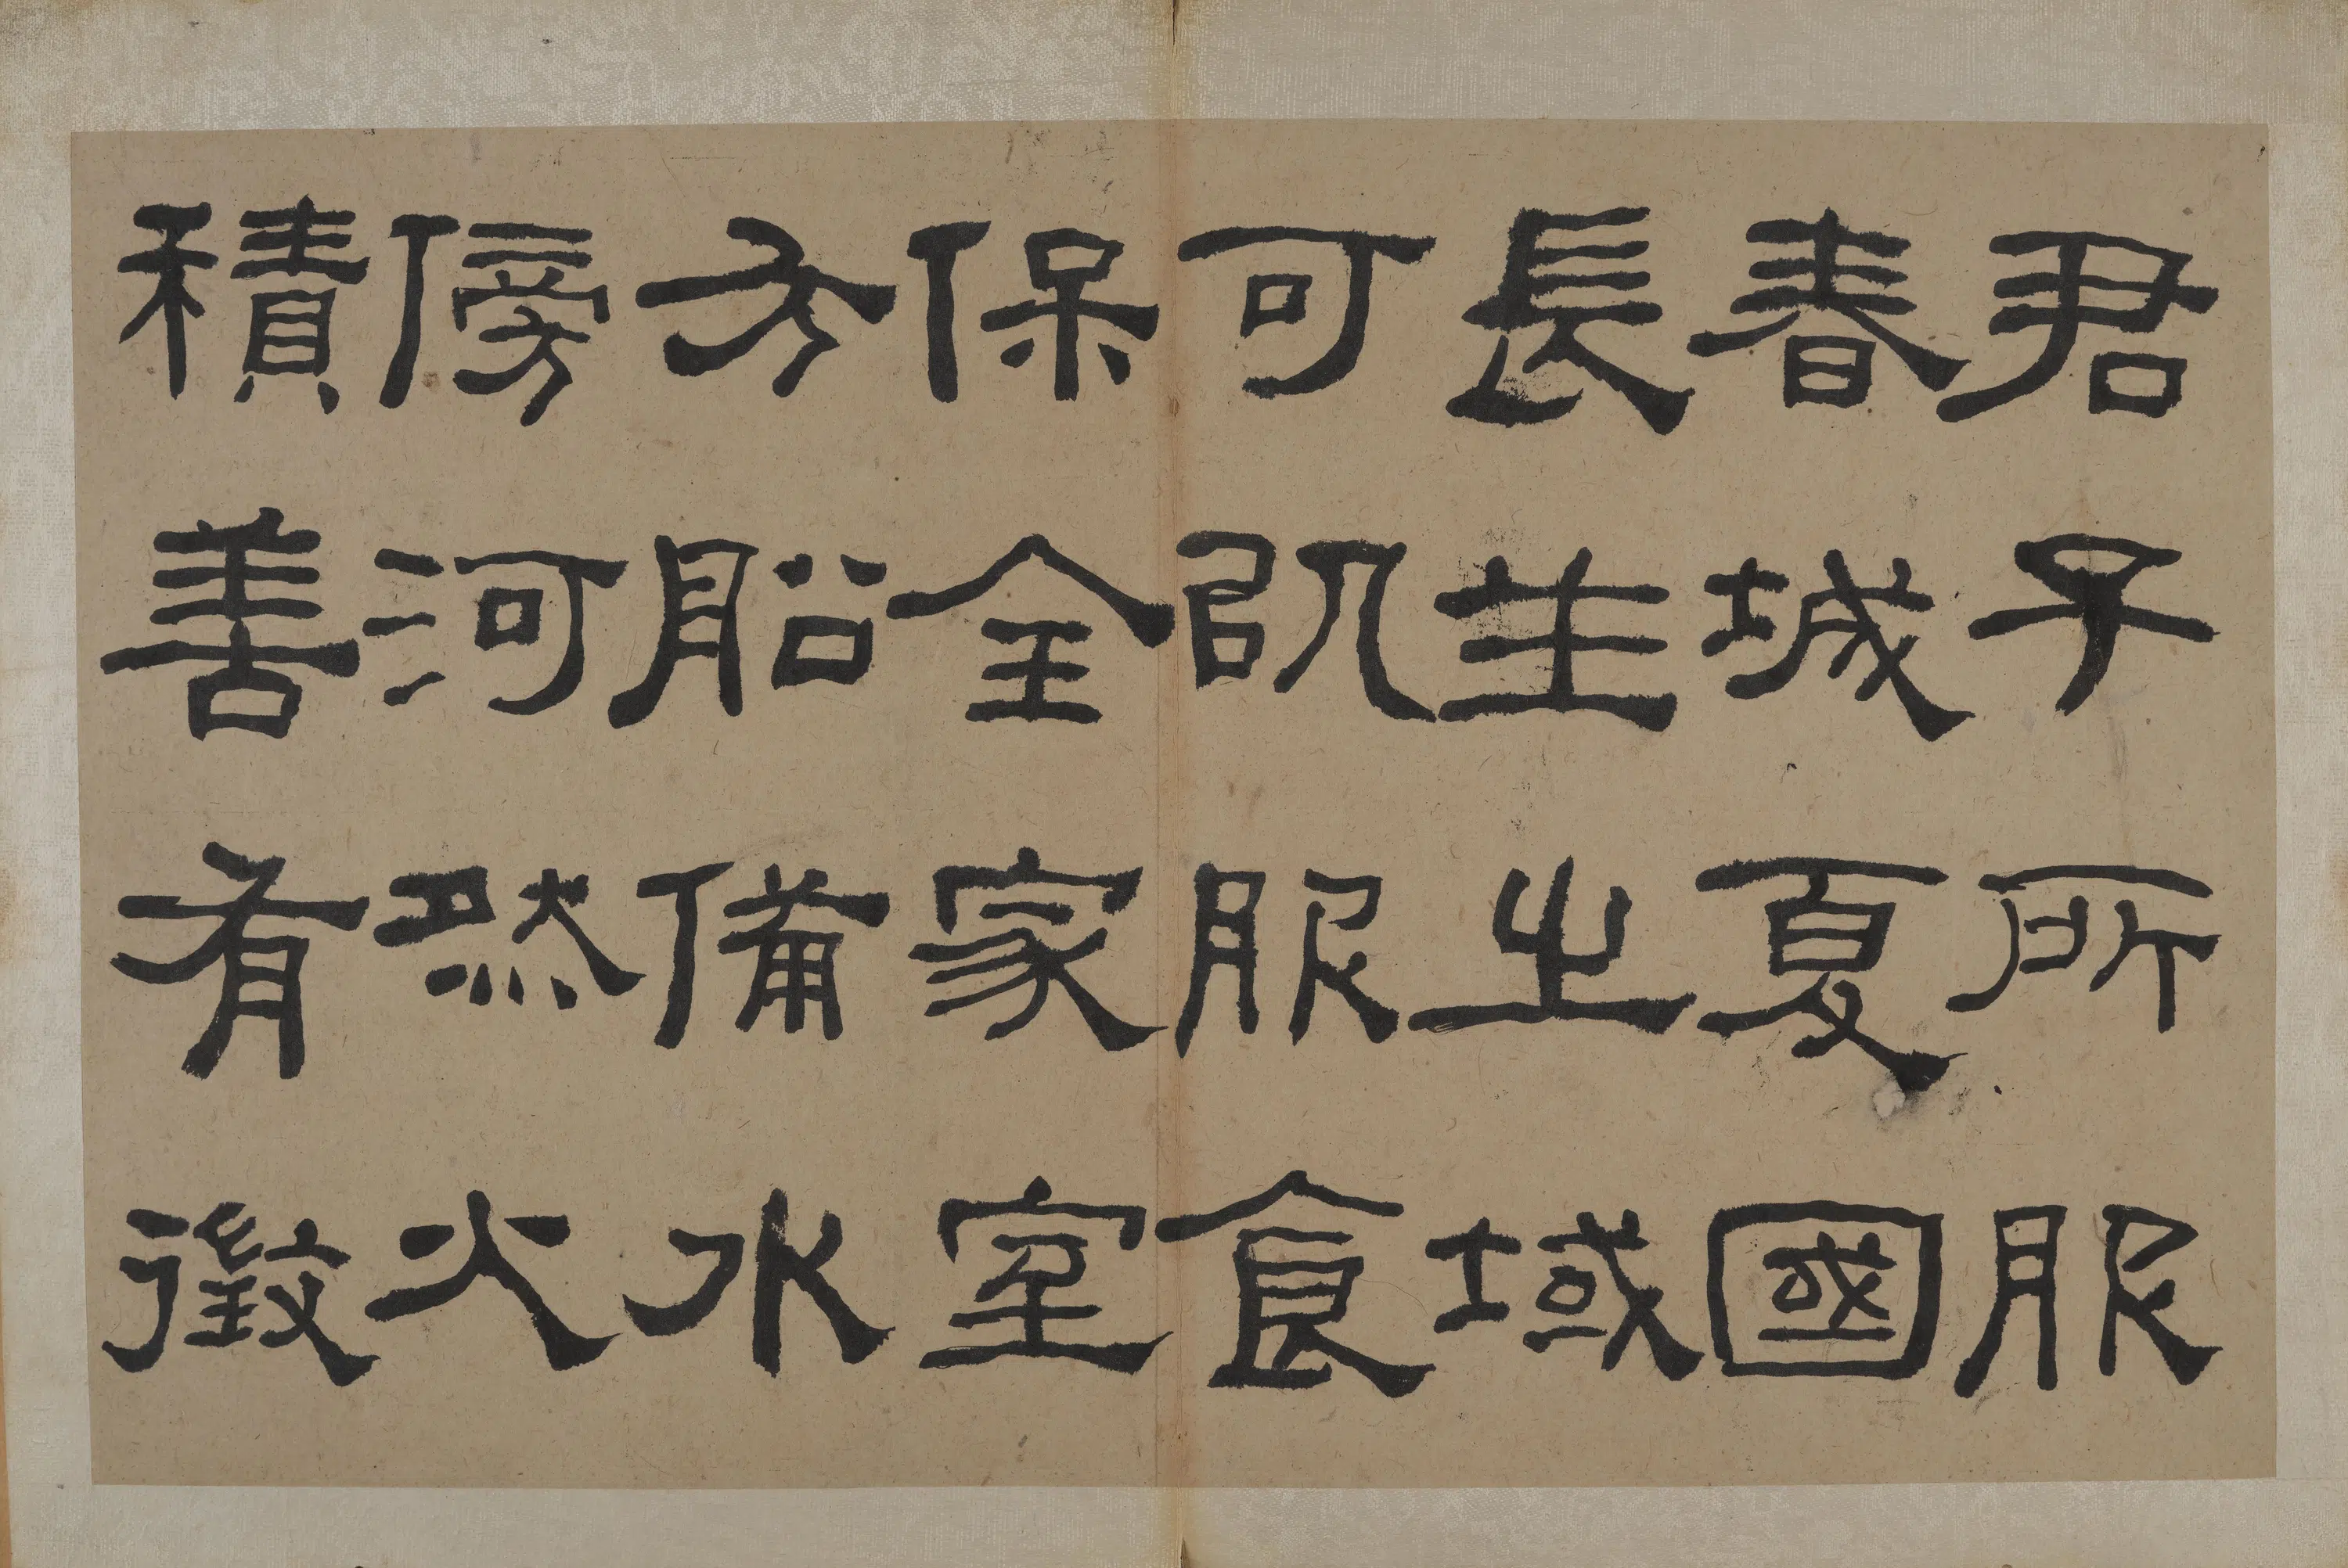 君子所服
春城夏國
長生之域
可以服食
保全家室
方船備水
傍河然火
積善有徵